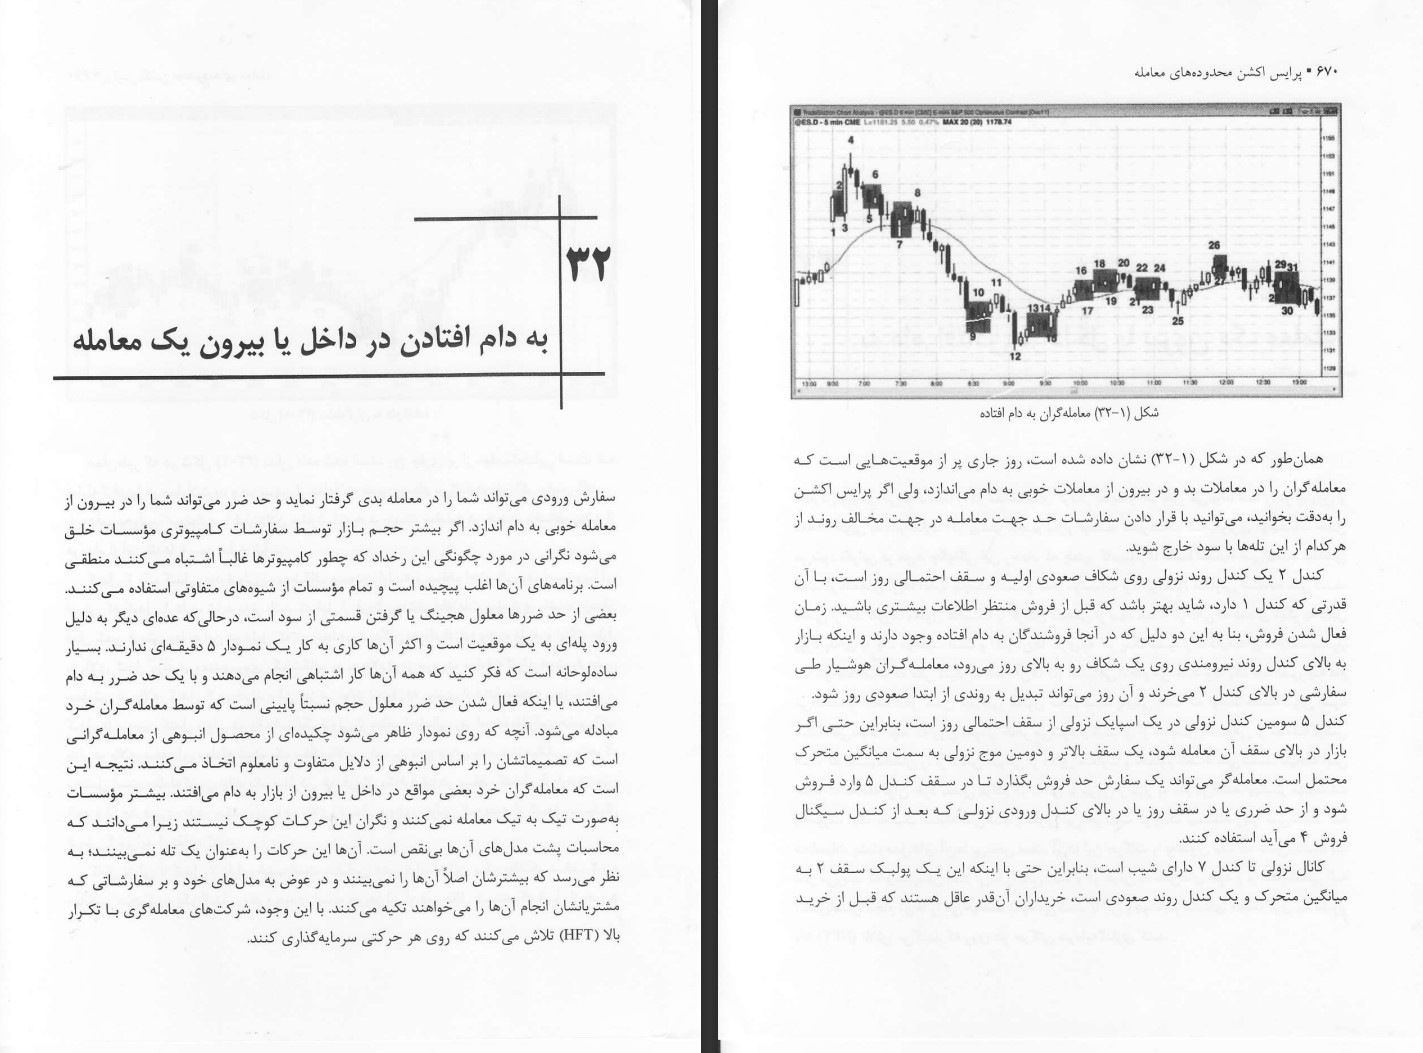 ۳۲
به دام افتادن در داخل یا بیرون یک معامله
سفارش ورودی می‌تواند شما را در معامله بدی گرفتار نماید و حد ضرر می‌تواند شما را در بیرون از
معامله خوبی به دام اندازد. اگر بیشتر حجم بازار توسط سفارشات کامپیوتری مؤسسات خلق
می‌شود نگرانی در مورد چگونگی این رخداد که چطور کامپیوترها غالباً اشتباه می‌کنند منطقی
است. برنامه‌های آن‌ها اغلب پیچیده است و تمام مؤسسات از شیوه‌های متفاوتی استفاده می‌کنند.
بعضی از حد ضررها معلول هجینگ یا گرفتن قسمتی از سود است، درحالی‌که عده‌ای دیگر به دلیل
ورود پله‌ای به یک موقعیت است و اکثر آن‌ها کاری به کار یک نمودار ۵ دقیقه‌ای ندارند. بسیار
ساده‌لوحانه است که فکر کنید که همه آن‌ها کار اشتباهی انجام می‌دهند و با یک حد ضرر به دام
می‌افتند، یا اینکه فعال شدن حد ضرر معلول حجم نسبتاً پایینی است که توسط معامله‌گران خرد
مبادله می‌شود. آنچه که روی نمودار ظاهر می‌شود چکیده‌ای از محصول انبوهی از معامله‌گرانی
است که تصمیماتشان را بر اساس انبوهی از دلایل متفاوت و نامعلوم اتخاذ می‌کنند. نتیجه این
است که معامله‌گران خرد بعضی مواقع در داخل یا بیرون از بازار به دام می‌افتند. بیشتر مؤسسات
به‌صورت تیک به تیک معامله نمی‌کنند و نگران این حرکات کوچک نیستند زیرا می‌دانند که
محاسبات پشت مدل‌های آن‌ها بی‌نقص است. آن‌ها این حرکات را به‌عنوان یک تله نمی‌بینند؛ به
نظر می‌رسد که بیشترشان اصلاً آن‌ها را نمی‌بینند و در عوض به مدل‌های خود و بر سفارشاتی که
مشتریانشان انجام آن‌ها را می‌خواهند تکیه می‌کنند. با این وجود، شرکت‌های معامله‌گری با تکرار
بالا (HFT) تلاش می‌کنند که روی هر حرکتی سرمایه‌گذاری کنند.
۶۷۰ ▪ پرایس اکشن محدوده‌های معامله
TradeStation Chart Analysis - @ES.D 5 min [CME] E-mini S&P 500 Continuous Contract [Dec11]
@ES.D - 5 min CME L=1181.25 5.50 0.47% MAX 20 (20) 1178.74
شکل (۱-۳۲) معامله‌گران به دام افتاده
همان‌طور که در شکل (۱-۳۲) نشان داده شده است، روز جاری پر از موقعیت‌هایی است که
معامله‌گران را در معاملات بد و در بیرون از معاملات خوبی به دام می‌اندازد، ولی اگر پرایس اکشن
را به‌دقت بخوانید، می‌توانید با قرار دادن سفارشات حد جهت معامله در جهت مخالف روند از
هرکدام از این تله‌ها با سود خارج شوید.
کندل ۲ یک کندل روند نزولی روی شکاف صعودی اولیه و سقف احتمالی روز است، با آن
قدرتی که کندل ۱ دارد، شاید بهتر باشد که قبل از فروش منتظر اطلاعات بیشتری باشید. زمان
فعال شدن فروش، بنا به این دو دلیل که در آنجا فروشندگان به دام افتاده وجود دارند و اینکه بازار
به بالای کندل روند نیرومندی روی یک شکاف رو به بالای روز می‌رود، معامله‌گران هوشیار طی
سفارشی در بالای کندل ۲ می‌خرند و آن روز می‌تواند تبدیل به روندی از ابتدا صعودی روز شود.
کندل ۵ سومین کندل نزولی در یک اسپایک نزولی از سقف احتمالی روز است، بنابراین حتی اگر
بازار در بالای سقف آن معامله شود، یک سقف بالاتر و دومین موج نزولی به سمت میانگین متحرک
محتمل است. معامله‌گر می‌تواند یک سفارش حد فروش بگذارد تا در سقف کندل ۵ وارد فروش
شود و از حد ضرری یا در سقف روز یا در بالای کندل ورودی نزولی که بعد از کندل سیگنال
فروش ۴ می‌آید استفاده کنند.
کانال نزولی تا کندل ۷ دارای شیب است، بنابراین حتی با اینکه این یک پولبک سقف ۲ به
میانگین متحرک و یک کندل روند صعودی است، خریداران آن‌قدر عاقل هستند که قبل از خرید